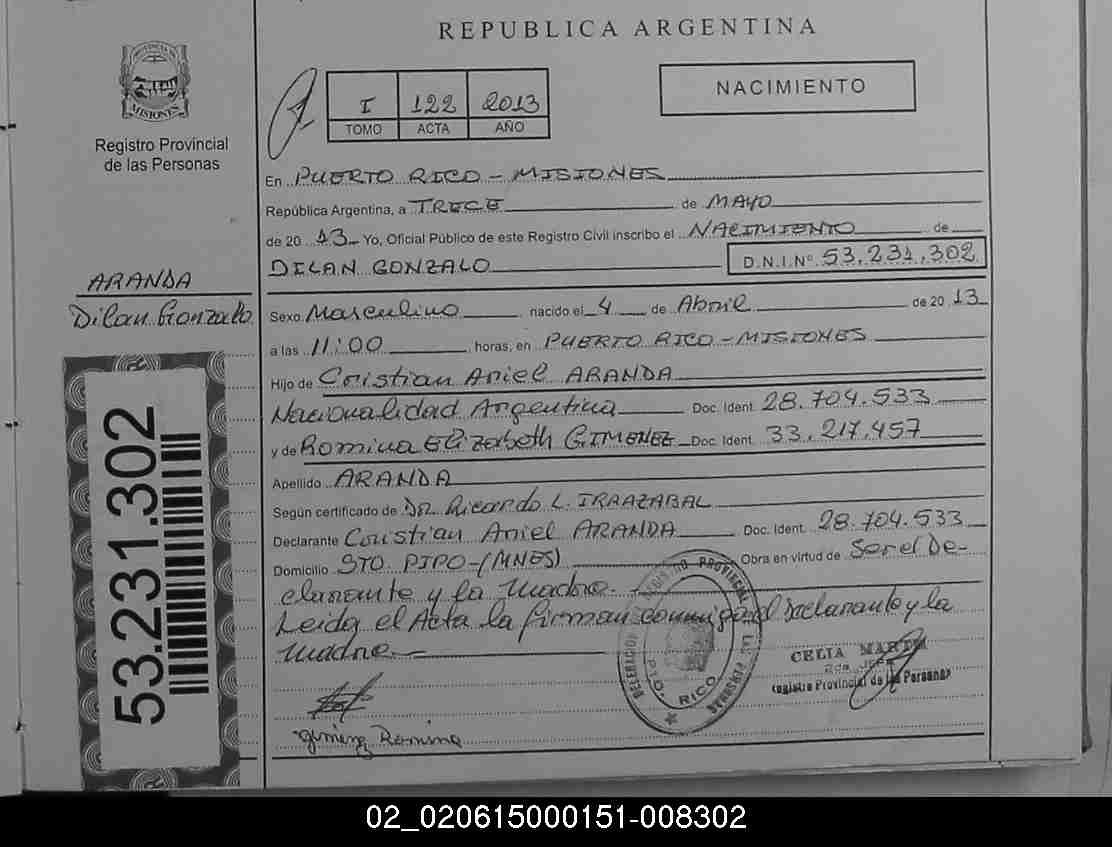 REPUBLICA ARGENTINA
PROVINCIA DE
MISIONES
Registro Provincial
de las Personas
I 122 2013
TOMO ACTA AÑO
NACIMIENTO
En PUERTO RICO - MISIONES
República Argentina, a TRECE de MAYO
de 20 13 Yo, Oficial Público de este Registro Civil inscribo el NACIMIENTO de
DILAN GONZALO D.N.I.Nº 53.231.302
ARANDA
Dilan Gonzalo
Sexo Masculino nacido el 4 de Abril de 20 13
a las 11:00 horas, en PUERTO RICO - MISIONES
Hijo de Cristian Ariel ARANDA
Nacionalidad Argentina Doc. Ident. 28.704.533
y de Romina Elizabeth GIMENEZ Doc. Ident. 33.217.457
Apellido ARANDA
Según certificado de Dr. Ricardo L. IRRAZABAL
Declarante Cristian Ariel ARANDA Doc. Ident. 28.704.533
Domicilio STO. PIPO - (MNES) Obra en virtud de Ser el De-
clarante y la Madre.
Leida el Acta la firman conmigo el Declarante y la
Madre.
53.231.302
REGISTRO PROVINCIAL DE LAS PERSONAS
DELEGACION
PTO. RICO
CELIA MARTA
Registro Provincial de las Personas
Gimenez Romina
02_020615000151-008302